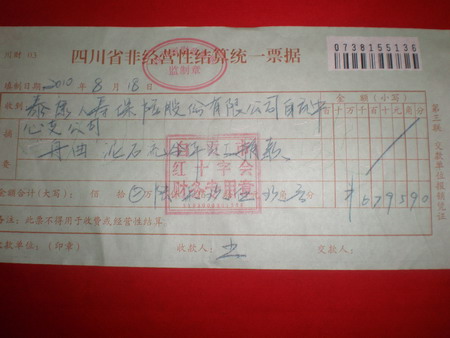 川财 03
四川省非经营性结算统一票据
0738155136
监制章
填制日期 2010 年 8 月 18 日
金额（小写）
收到 泰康人寿保险股份有限公司自贡中
十万千百十元角分
心支公司
摘
舟曲泥石流 员工捐款
要
红十字会
财务专用章
金额合计（大写）： 佰 拾 万
¥ 679590
备注：此票不得用于收费或经营性结算
交款单位：（印章） 收款人： 交款人：
第三联 交款单位报销凭证